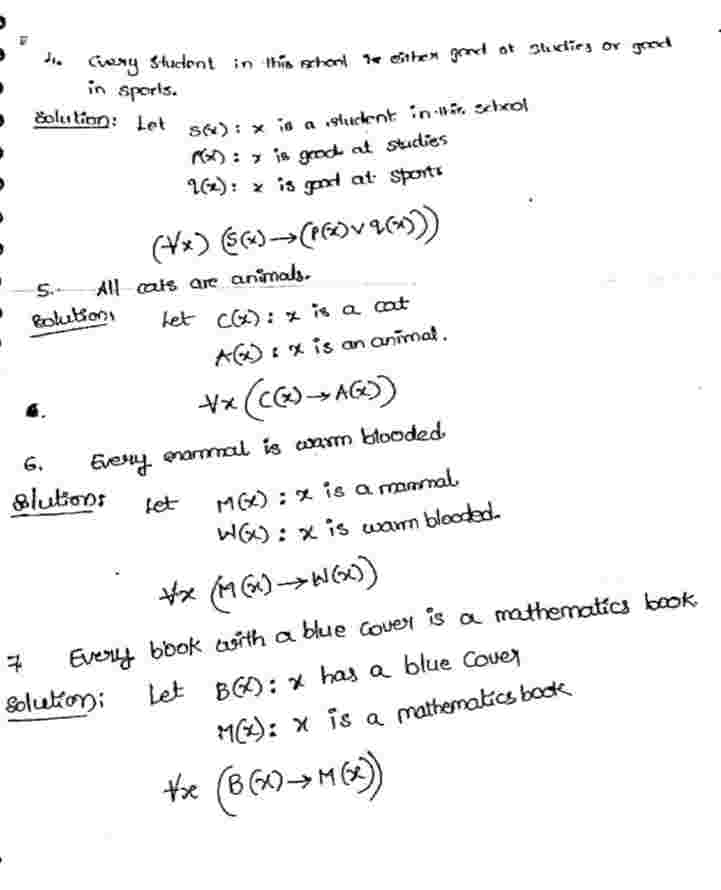 4. Every student in this school is either good at studies or good
in sports.
Solution: Let S(x) : x is a student in this school
P(x) : x is good at studies
q(x) : x is good at sports
(∀x) (S(x) → (P(x) ∨ q(x)))
5. All cats are animals.
Solution: Let C(x) : x is a cat
A(x) : x is an animal.
∀x (C(x) → A(x))
6.
6. Every mammal is warm blooded
Solution: Let M(x) : x is a mammal
W(x) : x is warm blooded.
∀x (M(x) → W(x))
7 Every book with a blue cover is a mathematics book
Solution: Let B(x) : x has a blue cover
M(x) : x is a mathematics book
∀x (B(x) → M(x))